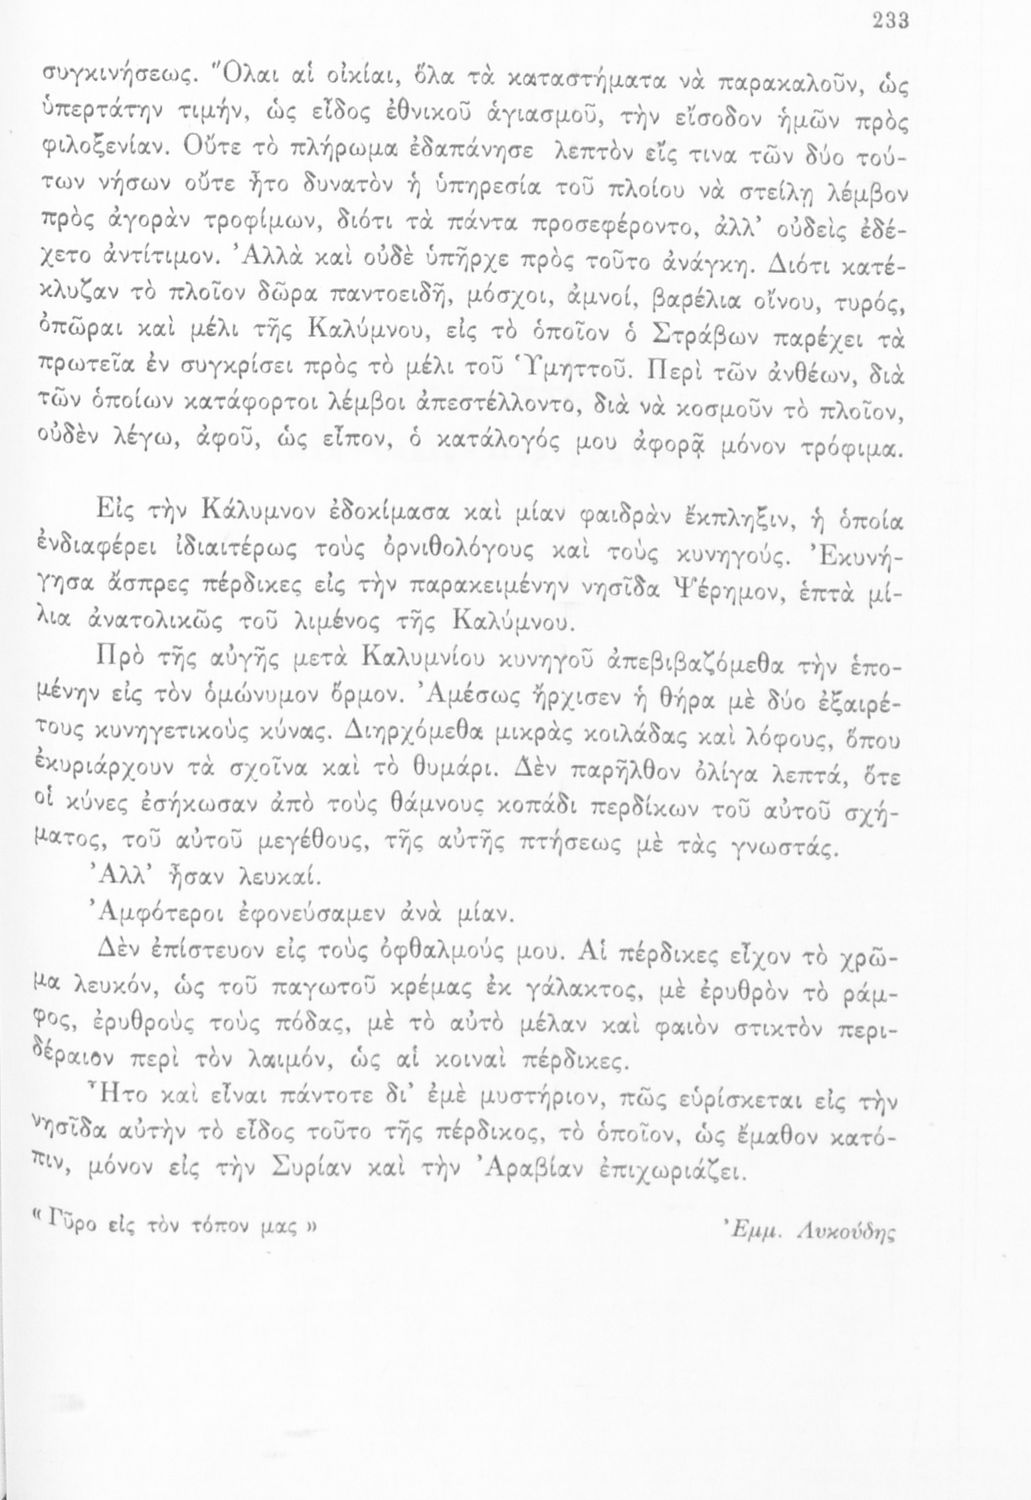 233
συγκινήσεως. Ὅλαι αἱ οἰκίαι, ὅλα τὰ καταστήματα νὰ παρακαλοῦν, ὡς
ὑπερτάτην τιμήν, ὡς εἶδος ἐθνικοῦ ἁγιασμοῦ, τὴν εἴσοδον ἡμῶν πρὸς
φιλοξενίαν. Οὔτε τὸ πλήρωμα ἐδαπάνησε λεπτὸν εἴς τινα τῶν δύο τού-
των νήσων οὔτε ἦτο δυνατὸν ἡ ὑπηρεσία τοῦ πλοίου νὰ στείλῃ λέμβον
πρὸς ἀγορὰν τροφίμων, διότι τὰ πάντα προσεφέροντο, ἀλλ’ οὐδεὶς ἐδέ-
χετο ἀντίτιμον. Ἀλλὰ καὶ οὐδὲ ὑπῆρχε πρὸς τοῦτο ἀνάγκη. Διότι κατέ-
κλυζαν τὸ πλοῖον δῶρα παντοειδῆ, μόσχοι, ἀμνοί, βαρέλια οἴνου, τυρός,
ὀπῶραι καὶ μέλι τῆς Καλύμνου, εἰς τὸ ὁποῖον ὁ Στράβων παρέχει τὰ
πρωτεῖα ἐν συγκρίσει πρὸς τὸ μέλι τοῦ Ὑμηττοῦ. Περὶ τῶν ἀνθέων, διὰ
τῶν ὁποίων κατάφορτοι λέμβοι ἀπεστέλλοντο, διὰ νὰ κοσμοῦν τὸ πλοῖον,
οὐδὲν λέγω, ἀφοῦ, ὡς εἶπον, ὁ κατάλογός μου ἀφορᾷ μόνον τρόφιμα.
Εἰς τὴν Κάλυμνον ἐδοκίμασα καὶ μίαν φαιδρὰν ἔκπληξιν, ἡ ὁποία
ἐνδιαφέρει ἰδιαιτέρως τοὺς ὀρνιθολόγους καὶ τοὺς κυνηγούς. Ἐκυνή-
γησα ἄσπρες πέρδικες εἰς τὴν παρακειμένην νησῖδα Ψέρημον, ἑπτὰ μί-
λια ἀνατολικῶς τοῦ λιμένος τῆς Καλύμνου.
Πρὸ τῆς αὐγῆς μετὰ Καλυμνίου κυνηγοῦ ἀπεβιβαζόμεθα τὴν ἑπο-
μένην εἰς τὸν ὁμώνυμον ὅρμον. Ἀμέσως ἤρχισεν ἡ θήρα μὲ δύο ἐξαιρέ-
τους κυνηγετικοὺς κύνας. Διηρχόμεθα μικρὰς κοιλάδας καὶ λόφους, ὅπου
ἐκυριάρχουν τὰ σχοῖνα καὶ τὸ θυμάρι. Δὲν παρῆλθον ὀλίγα λεπτά, ὅτε
οἱ κύνες ἐσήκωσαν ἀπὸ τοὺς θάμνους κοπάδι περδίκων τοῦ αὐτοῦ σχή-
ματος, τοῦ αὐτοῦ μεγέθους, τῆς αὐτῆς πτήσεως μὲ τὰς γνωστάς.
Ἀλλ’ ἦσαν λευκαί.
Ἀμφότεροι ἐφονεύσαμεν ἀνὰ μίαν.
Δὲν ἐπίστευον εἰς τοὺς ὀφθαλμούς μου. Αἱ πέρδικες εἶχον τὸ χρῶ-
μα λευκόν, ὡς τοῦ παγωτοῦ κρέμας ἐκ γάλακτος, μὲ ἐρυθρὸν τὸ ράμ-
φος, ἐρυθροὺς τοὺς πόδας, μὲ τὸ αὐτὸ μέλαν καὶ φαιὸν στικτὸν περι-
δέραιον περὶ τὸν λαιμόν, ὡς αἱ κοιναὶ πέρδικες.
Ἦτο καὶ εἶναι πάντοτε δι’ ἐμὲ μυστήριον, πῶς εὑρίσκεται εἰς τὴν
νησῖδα αὐτὴν τὸ εἶδος τοῦτο τῆς πέρδικος, τὸ ὁποῖον, ὡς ἔμαθον κατό-
πιν, μόνον εἰς τὴν Συρίαν καὶ τὴν Ἀραβίαν ἐπιχωριάζει.
«Γῦρο εἰς τὸν τόπον μας»
Ἐμμ. Λυκούδης